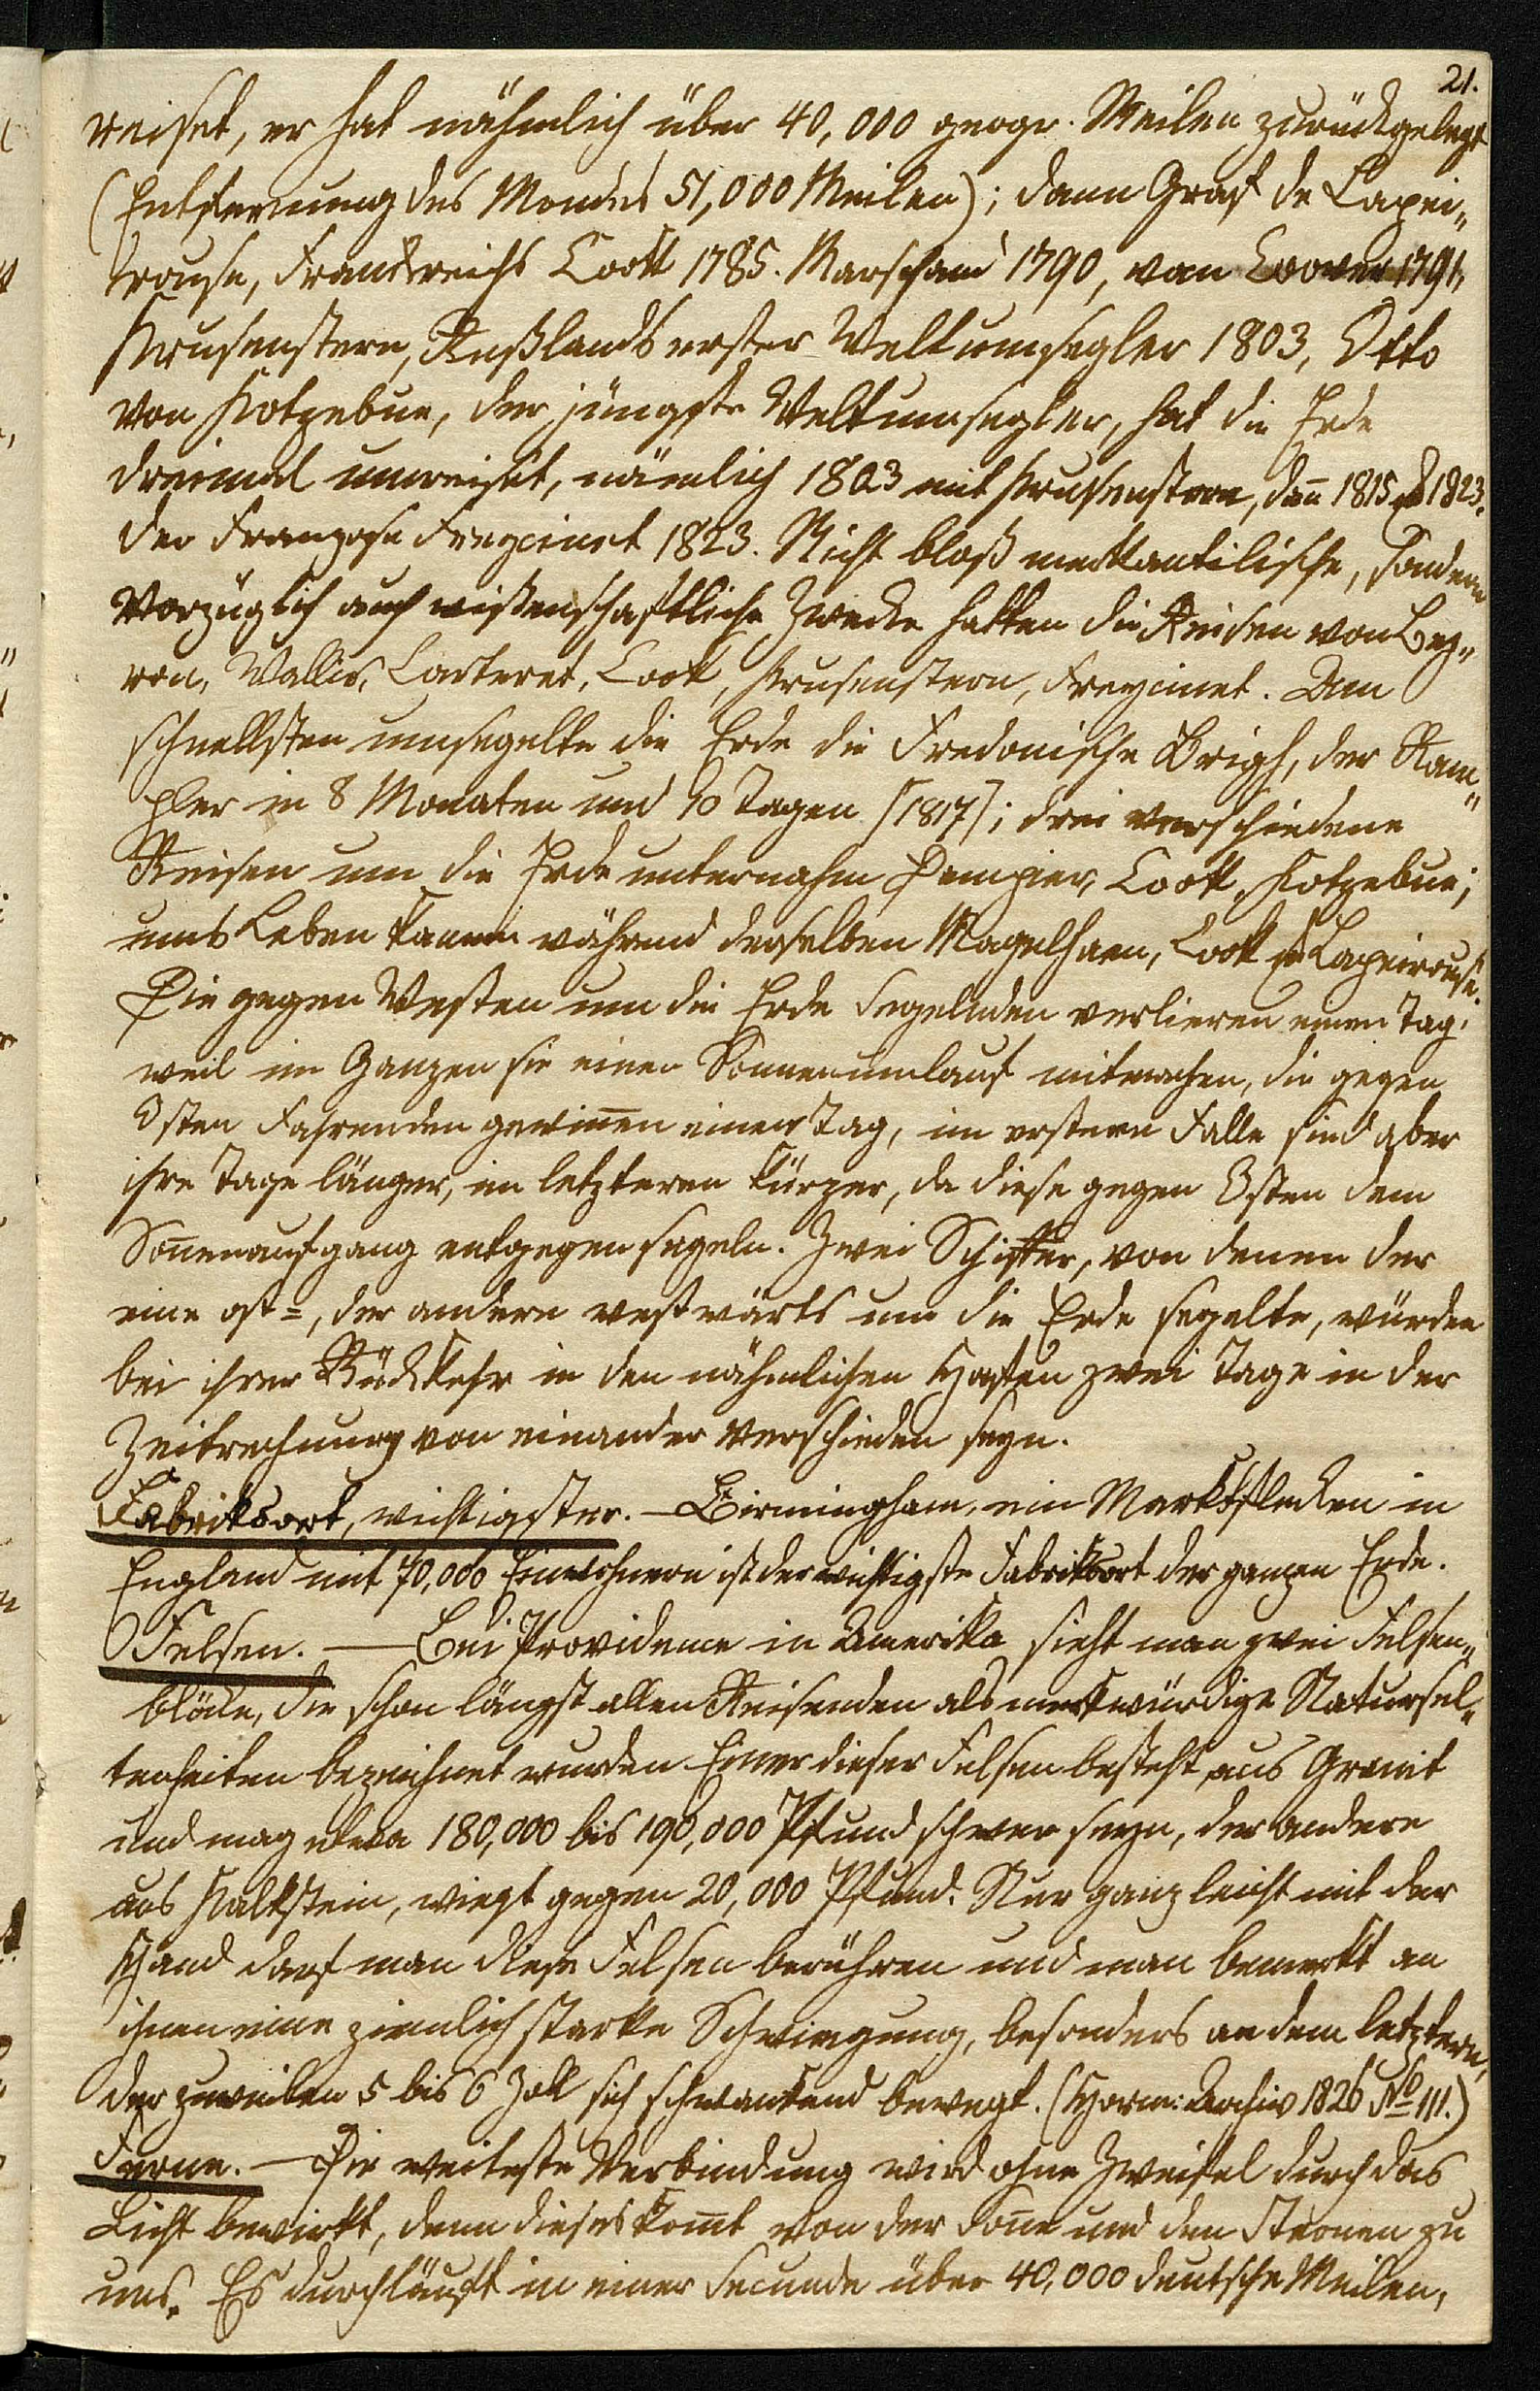 21.
reiset, er hat nähmlich über 40,000 geogr. Meilen zurückgelegt
(Entfernung des Mondes 51,000 Meilen); dann Graf de Lapei„
rouse, Frankreichs Cook 1785. Marschand 1790, van 1791,
Krusenstern, Rußlands erster Weltumsegler 1803, Otto
von Kotzebue, der jüngste Weltumsegler, hat die Erde
dreimal umreiset, nämlich 1803 mit Krusenstern, dan̄ 1815 & 1823.
der Franzose Freycinet 1823. Nicht bloß merkantilische, sondern
vorzüglich auch wißenschaftliche Zwecke hatten die Reisen von Bey„
ron, Wallis, Carteret, Cook, Krusenstern, Freycinet. Am
schnellsten umsegelte die Erde die Fredonische Brigh, der Ram„
pler in 8 Monaten und 10 Tagen [1817]; drei verschiedene
Reisen um die Erde unternahm Dempier, Cook, Kotzebue;
ums Leben kamen während derselben Magelhaen, Cook & Lapeirouse.
Die gegen Westen um die Erde Segelnden verlieren einen Tag,
weil im Ganzen sie einen Sonnenumlauf mitmachen, die gegen
Osten Fahrenden gewin̄en einen Tag, im erstern Falle sind aber
ihre Tage länger, im letzteren kürzer, da diese gegen Osten dem
Son̄enaufgang entgegen segeln. Zwei Schiffer, von denen der
eine ost=, der andere westwärts um die Erde segelte, würden
bei ihrer Rückkehr in den nähmlichen Hafen zwei Tage in der
Zeitrechnung von einander verschieden seyn.
Fabriksort, wichtigster. — Birmingham, ein Marktflecken in
England mit 70,000 Einwohnern ist der wichtigste Fabriksort der ganzen Erde.
Felsen. — Bei Providence in Amerika sieht man zwei Felsen„
blöcke, die schon längst allen Reisenden als merkwürdige Natursel„
tenheiten bezeichnet wurden. Einer dieser Felsen besteht aus Granit
und mag etwa 180,000 bis 190,000 Pfund schwer seyn, der andere
aus Kalkstein, wiegt gegen 20,000 Pfund. Nur ganz leicht mit der
Hand darf man diese Felsen berühren und man bemerkt an
ihnen eine ziemlich starke Schwingung, besonders an dem letztern,
der zuweilen 5 bis 6 Zoll sich schwankend bewegt. (Horm: Archiv 1826 No 111.)
Ferne. — Die weiteste Verbindung wird ohne Zweifel durch das
Licht bewirkt, denn dieses kom̄t von der Son̄e und den Sternen zu
uns. Es durchläuft in einer Secunde über 40,000 deutsche Meilen,